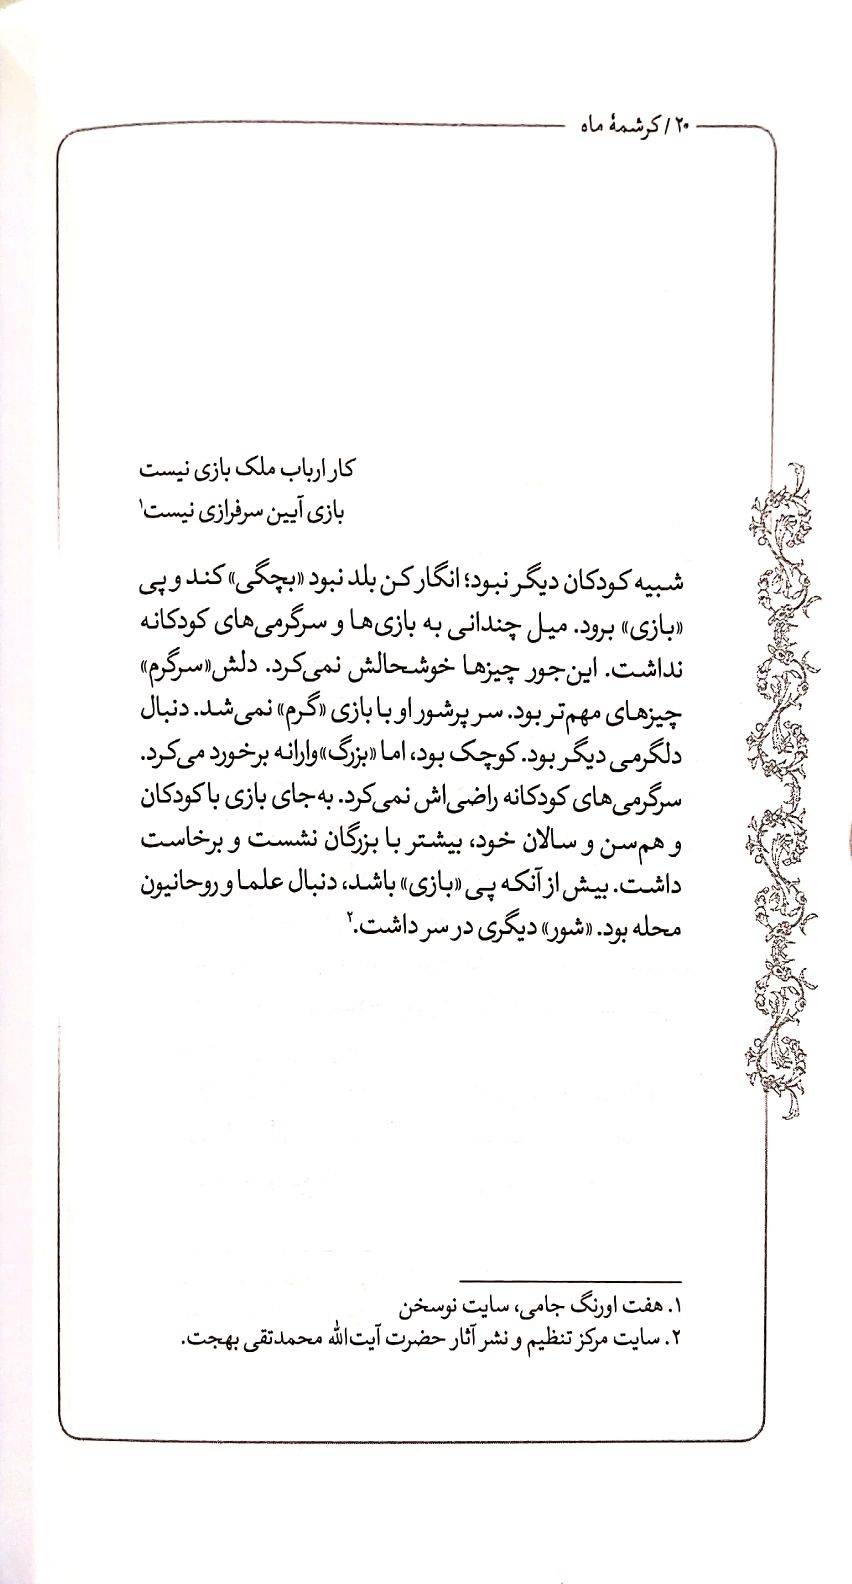 ۲۰ / کرشمهٔ ماه
کار ارباب ملک بازی نیست
بازی آیین سرفرازی نیست۱
شبیه کودکان دیگر نبود؛ انگار کن بلد نبود «بچگی» کند و پی
«بازی» برود. میل چندانی به بازی‌ها و سرگرمی‌های کودکانه
نداشت. این‌جور چیزها خوشحالش نمی‌کرد. دلش «سرگرم»
چیزهای مهم‌تر بود. سر پرشور او با بازی «گرم» نمی‌شد. دنبال
دلگرمی دیگر بود. کوچک بود، اما «بزرگ»وارانه برخورد می‌کرد.
سرگرمی‌های کودکانه راضی‌اش نمی‌کرد. به‌جای بازی با کودکان
و هم‌سن و سالان خود، بیشتر با بزرگان نشست و برخاست
داشت. بیش از آنکه پی «بازی» باشد، دنبال علما و روحانیون
محله بود. «شور» دیگری در سر داشت.۲
۱. هفت اورنگ جامی، سایت نوسخن
۲. سایت مرکز تنظیم و نشر آثار حضرت آیت‌الله محمدتقی بهجت.